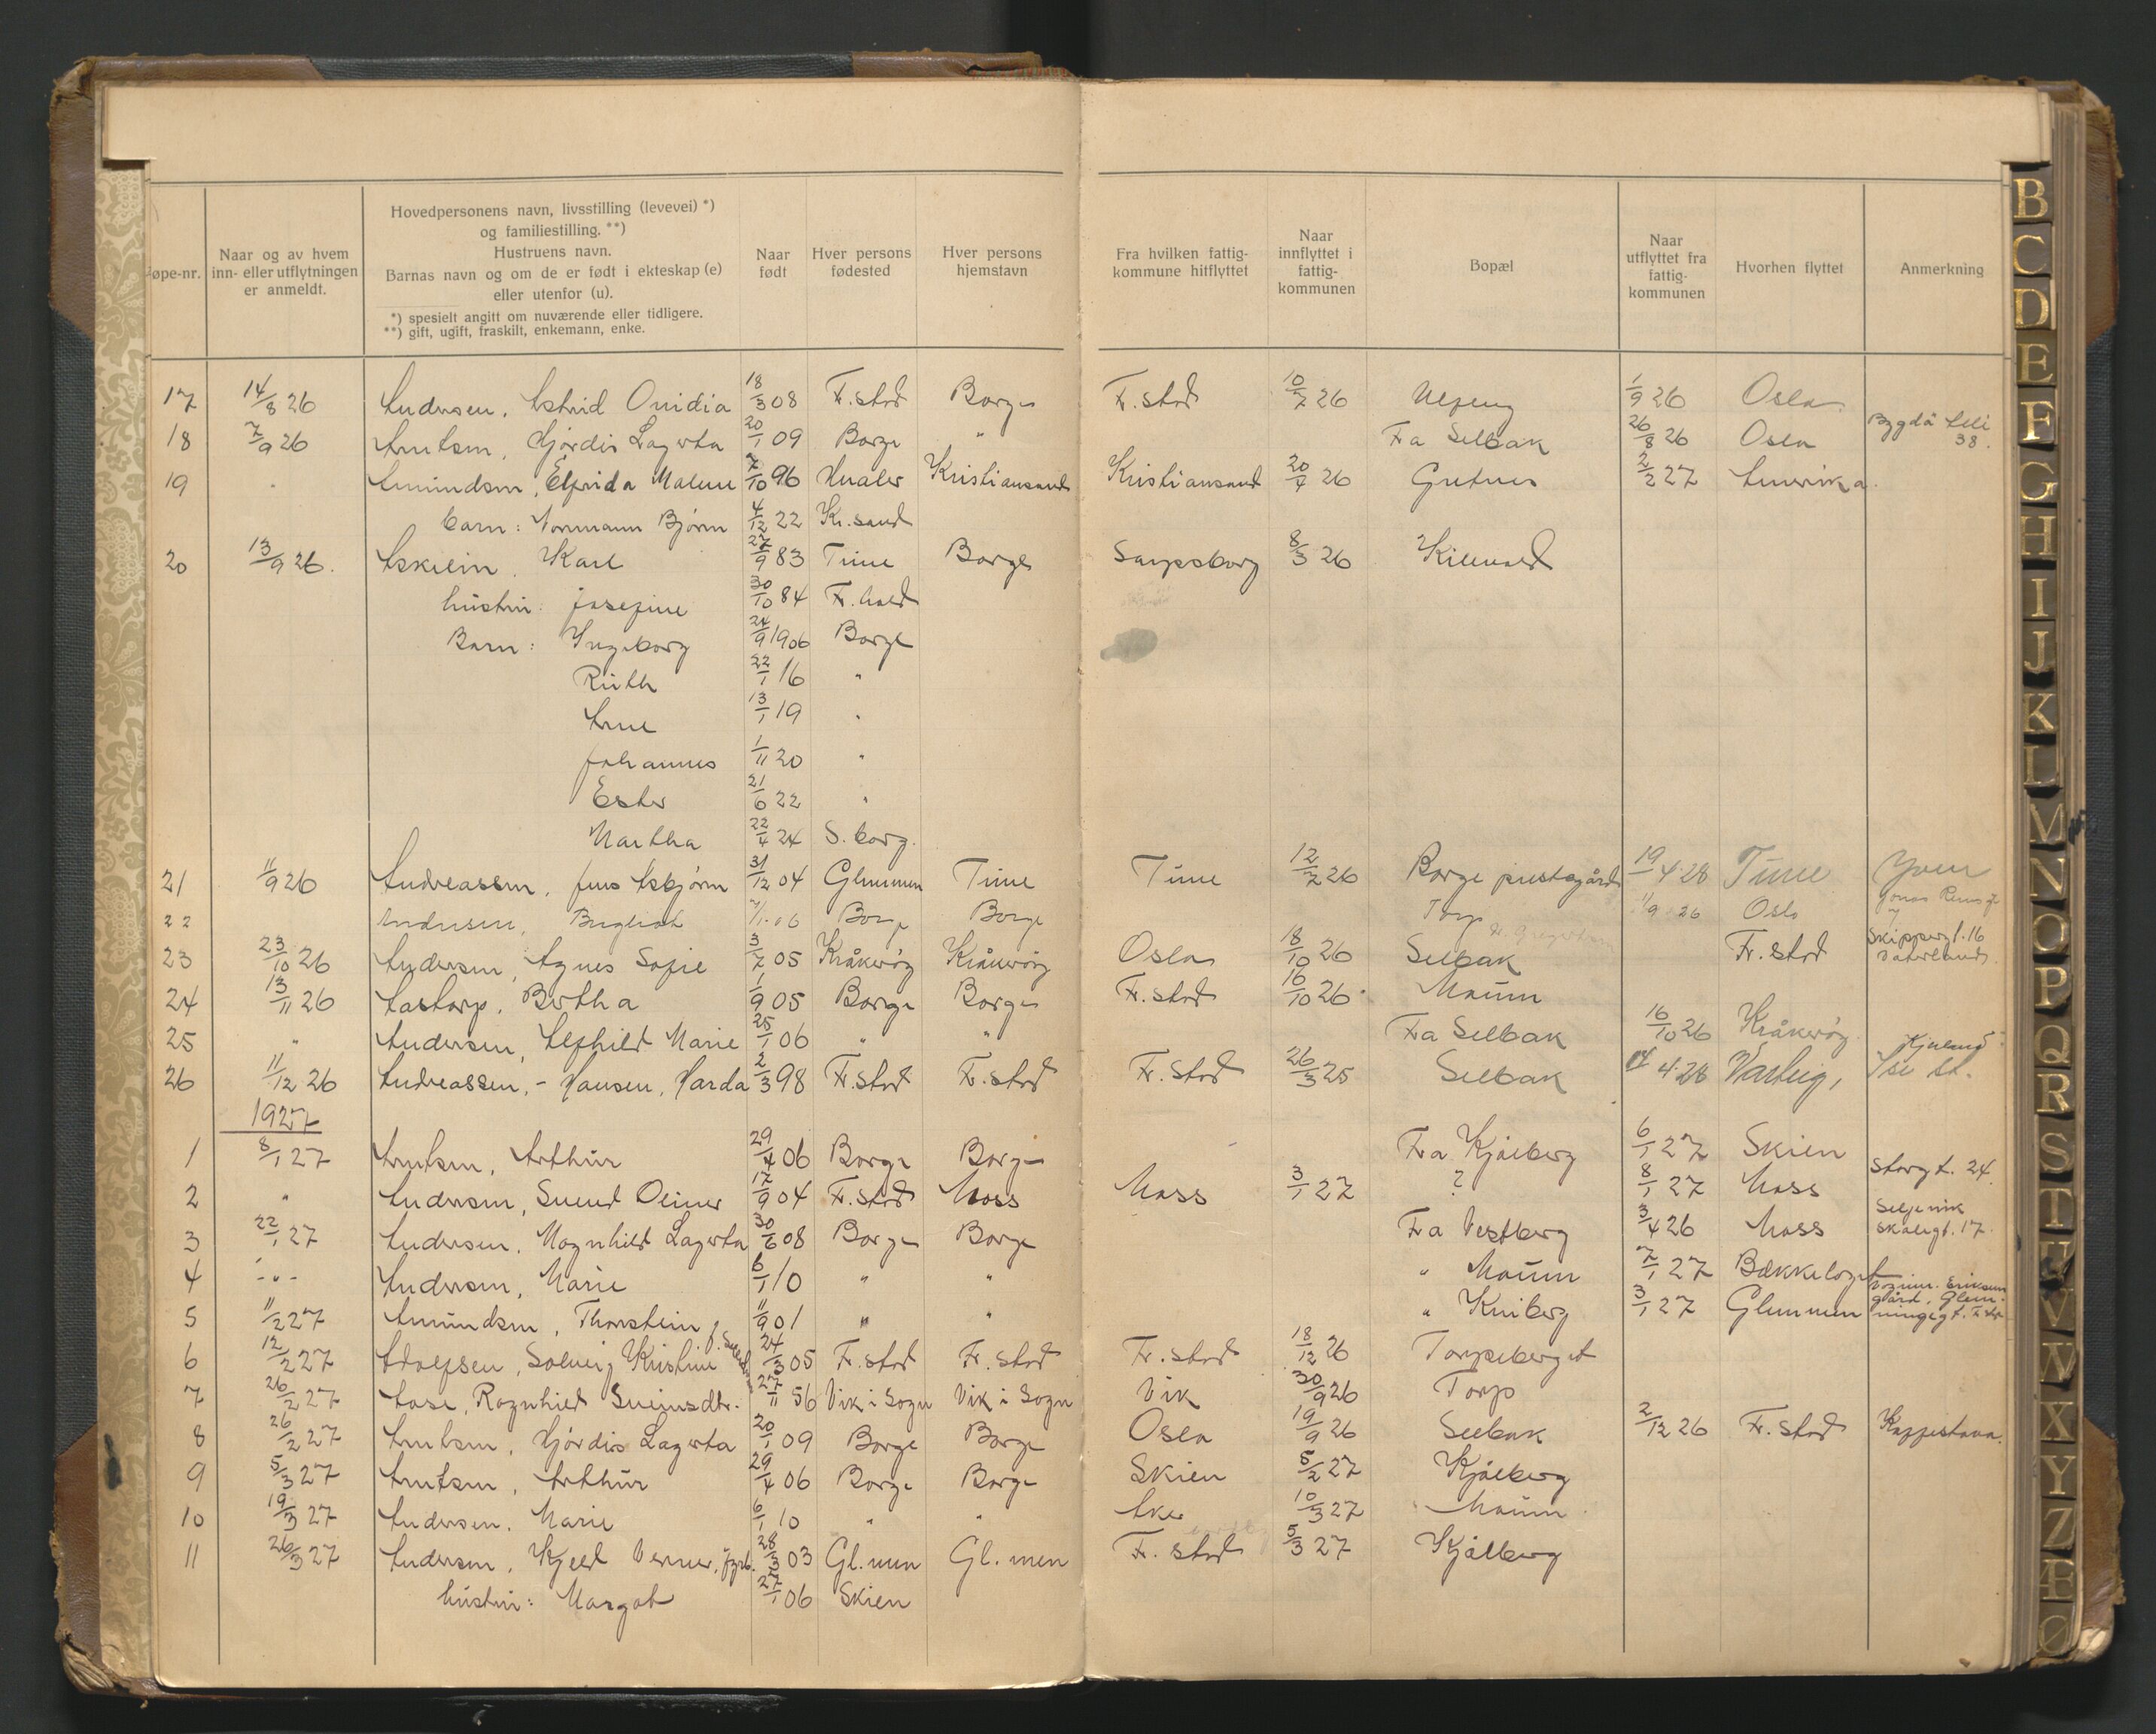 øpe-nr.
Naar og av hvem inn- eller utflytningen er anmeldt.
Hovedpersonens navn, livsstilling (levevei) *) og familiestilling. **)
Hustruens navn.
Barnas navn og om de er født i ekteskap (e) eller utenfor (u).
*) spesielt angitt om nuværende eller tidligere.
**) gift, ugift, fraskilt, enkemann, enke.
Naar født
Hver persons fødested
Hver persons hjemstavn
Fra hvilken fattigkommune hitflyttet
Naar innflyttet i fattigkommunen
Bopæl
Naar utflyttet fra fattigkommunen
Hvorhen flyttet
Anmerkning
17 14/8 26 Andersen, Astrid Ovidia 18/3 08 F.stad Borge F.stad 10/7 26 1/9 26 Oslo
18 7/9 26 Arntsen, Hjørdis Lagerta 20/1 09 Borge " Fra Selbak 26/8 26 Oslo Bygdö Allé 38.
19 " Amundsen, Elfrida Malene 7/10 96 Hvaler Kristiansand Kristiansand 20/4 26 Gretnes 2/2 27 Amerika.
barn: Normann Bjørn 4/12 22 Kr.sand
20 13/9 26. Askeim Karl 27/9 83 Tune Borge Sarpsborg 8/3 26 Kilevold
hustru: Josefine 30/10 84 Fr.hald
Barn: Ingeborg 24/9 1906 Borge
Ruth 22/1 16 "
Arne 13/1 19 "
Johannes 1/11 20 "
Ester 21/6 22 "
Martha 22/4 24 S.borg.
21 11/9 26 Andreassen, Jens Asbjørn 31/12 04 Glemmen Tune Tune 12/7 26 Borge prestegård 19/4 28 Tune Yven
22 Andersen, Bergliot 7/1 06 Borge Borge Torp 11/9 26 Oslo Jonas Reins g. 7
23 23/10 26 Andersen, Agnes Sofie 3/7 05 Kråkerøy Kråkerøy Oslo 18/10 26 Selbak Fr.stad Skippergt. 16 Vaterland.
24 13/11 26 Aastorp, Bertha 1/9 05 Borge Borge Fr.stad 16/10 26 Moum
25 " Andersen, Alfhild Marie 25/1 06 " " Fra Selbak 16/10 26 Kråkerøy
26 11/12 26 Andreassen, - Hansen, Harda 2/3 98 Fr.stad Fr.stad Fr.stad 26/3 25 Selbak 14/4 28 Varteig, Ise st.
1927
1 8/1 27 Arntsen, Arthur 29/4 06 Borge Borge Fra Kjølberg 6/1 27 Skien
2 " Andersen, Svend Oliver 17/9 04 Fr.stad Moss Moss 3/1 27 ? 8/1 27 Moss Storgt. 24.
3 22/1 27 Andersen, Magnhild Lagerta 30/6 08 Borge Borge Fra Vestberg 3/4 26 Moss Skolegt. 17.
4 -"- Andersen, Marie 6/1 10 " " " Moum 7/1 27 Bækkelaget
5 11/2 27 Amundsen, Thorstein 11/9 01 " " " Kniberg 3/1 27 Glemmen Eriksens gård, Glemmingegt. Fr.st.
6 12/2 27 Adolfsen, Solveig Kristine 24/3 05 Fr.stad Fr.stad Fr.stad 18/12 26 Torpeberget
7 26/2 27 Aase, Ragnhild Sveinsdtr. 27/11 56 Vik i Sogn Vik i Sogn Vik 30/9 26 Torp
8 26/2 27 Arntsen, Hjørdis Lagerta 20/1 09 Borge Borge Oslo 19/9 26 Selbak 2/12 26 Fr.stad
9 5/3 27 Arntsen, Arthur 29/4 06 Borge Borge Skien 5/2 27 Kjølberg
10 19/3 27 Andersen, Marie 6/1 10 " " Aker 10/3 27 Moum
11 26/3 27 Andersen, Kjeld Verner, 28/3 03 Gl.men Gl.men Fr.stad 5/3 27 Kjølberg
hustru: Margot 27/1 06 Skien
B
C
D
E
F
G
H
I
J
K
L
M
N
O
P
Q
R
S
T
U
V
W
X
Y
Z
Æ
Ø